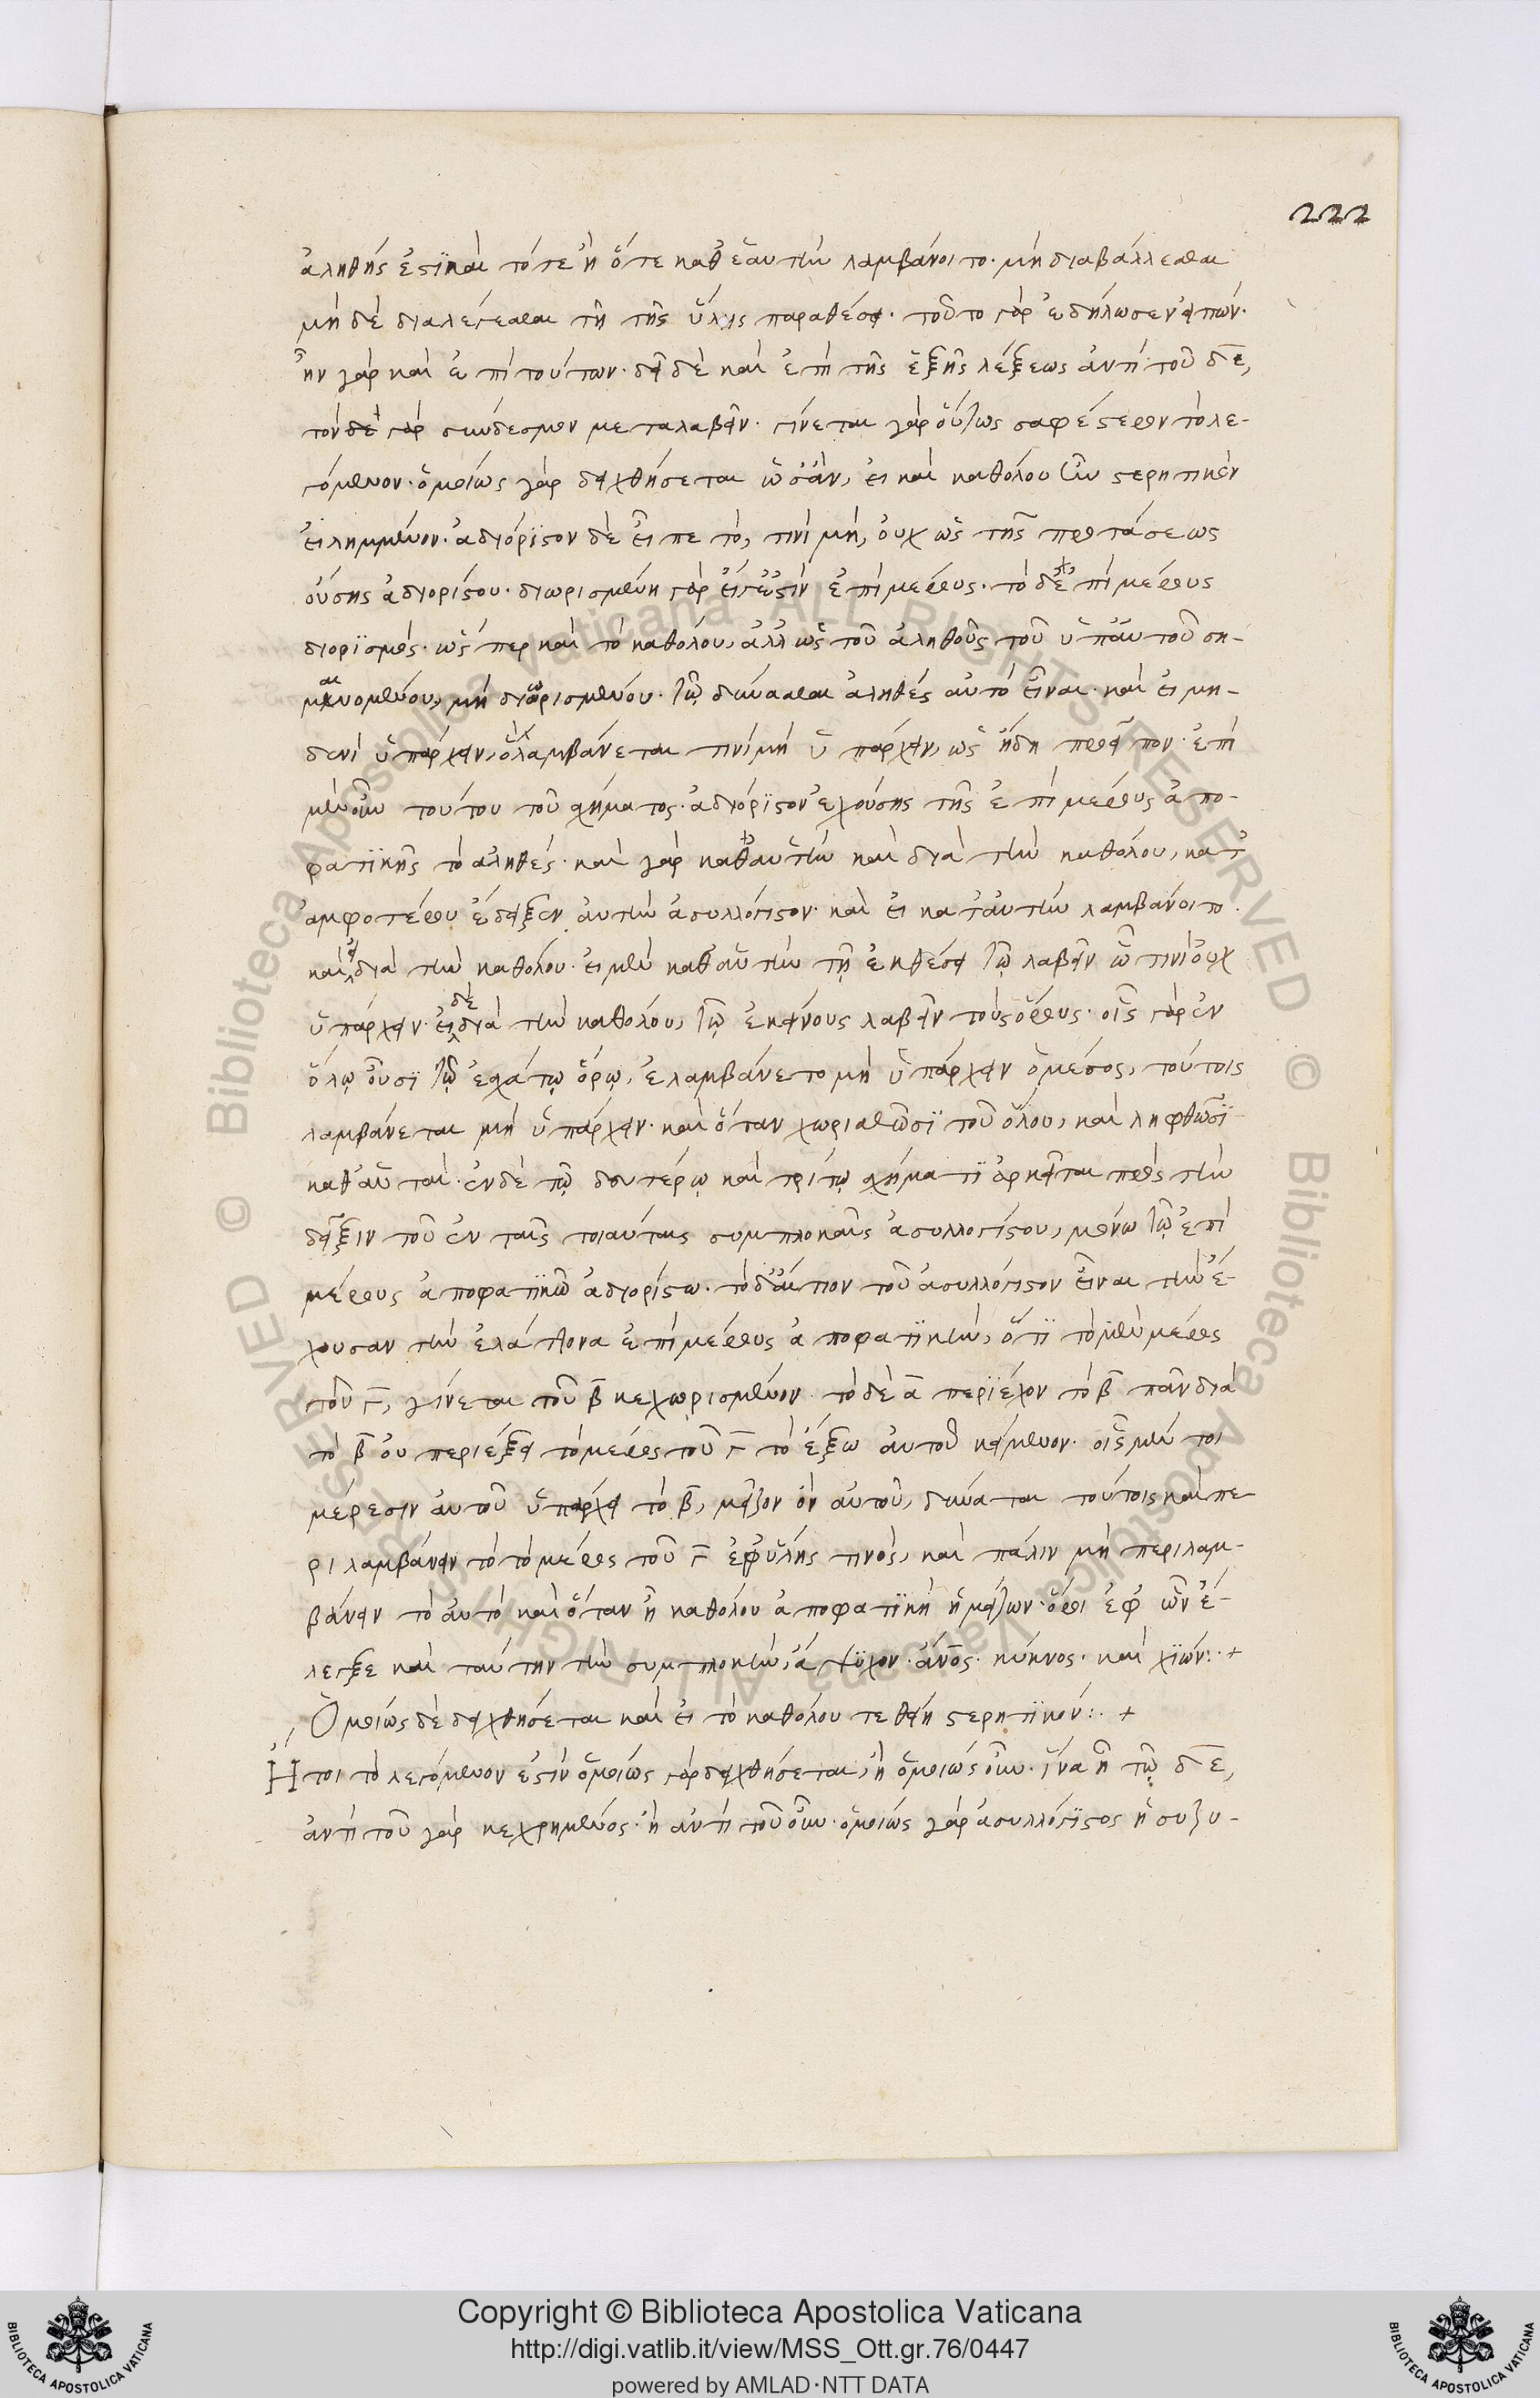 222
ἀληθής ἐστϊ καὶ τότε ἢ ὅτε καθ' ἑαυτὴν λαμβάνοιτο· μὴ διαβάλλεσθαι
μὴ δὲ διαλέγεσθαι τῆ τῆς ὕλης παραθέσει· τοῦτο γὰρ ἐδήλωσεν εἰπών·
ἦν γὰρ καὶ ἐπὶ τούτων· δεῖ δὲ καὶ ἐπὶ τῆς ἑξῆς λέξεως ἀντὶ τοῦ δε,
τὸν γὰρ σύνδεσμον μεταλαβεῖν· γίνεται γὰρ οὕτως σαφέστερον τὸ λε-
γόμενον· ὁμοίως γὰρ δειχθήσεται ὡσἂν, εἰ καὶ καθόλου ἦν στερητικὸν
εἰλημμένον· ἀδιόρϊστον δὲ εἶπε τὸ, τινὶ μὴ, οὐχ ὡς τῆς προτάσεως
οὔσης ἀδιορίστου· διωρισμένη γὰρ ἐστὶν ἐπιμέρους· τὸ δὲ ἐπιμέρους
διορϊσμός· ὥσπερ καὶ τὸ καθόλου, ἀλλ' ὡς τοῦ ἀληθοῦς τοῦ ὑπ' αὐτοῦ ση-
μαινομένου, μὴ διωρισμένου· τῶ δύνασθαι ἀληθές αὐτὸ εἶναι· καὶ εἰ μη-
δενὶ ὑπάρχειν, ὃ λαμβάνεται τινὶ μὴ ὑπάρχειν, ὡς ἤδη προεῖπον· ἐπὶ
μὲν οὖν τούτου τοῦ σχήματος· ἀδιόρϊστον ἐχούσης τῆς ἐπιμέρους ἀπο-
φατϊκῆς τὸ ἀληθές· καὶ γὰρ καθ' αὑτὴν καὶ διὰ τὴν καθόλου, κατ'
ἀμφοτέρου ἔδειξεν αὐτὴν ἀσυλλόγιστον· καὶ εἰ κατ' αὐτὴν λαμβάνοιτο·
καὶ εἰ διὰ τὴν καθόλου· εἰ μὲν καθ' αὑτὴν τῆ ἐκθέσει τῶ λαβεῖν ὧ τινὶ οὐχ
ὑπάρχειν· εἰ δὲ διὰ τὴν καθόλου, τῶ ἐκείνους λαβεῖν τοὺς ὅρους· οἷς γὰρ ἐν
ὅλῳ οὖσϊ τῶ ἐσχάτῳ ὅρῳ, ἐλαμβάνετο μὴ ὑπάρχειν ὁ μέσος, τούτοις
λαμβάνεται μὴ ὑπάρχειν· καὶ ὅταν χωρισθῶσϊ τοῦ ὅλου, καὶ ληφθῶσϊ
καθ' αὑταὶ· ἐν δὲ τῷ δευτέρῳ καὶ τρίτῳ σχήματϊ ἀρκεῖται πρὸς τὴν
δεῖξιν τοῦ ἐν ταῖς τοιαύταις συμπλοκαῖς ἀσυλλογίστου, μόνω τῶ ἐπι
μέρους ἀποφατϊκῶ ἀδιορίστω· τὸ δ' αἴτιον τοῦ ἀσυλλόγιστον εἶναι τὴν ἔ-
χουσαν τὴν ἐλάττονα ἐπιμέρους ἀποφατϊκὴν, ὅτϊ τὸ μὲν μέρος
τοῦ Γ, γίνεται τοῦ β κεχωρισμένον· τὸ δὲ α περϊέχον τὸ β πᾶν διὰ
τὸ β οὐ περιέξει τὸ μέρος τοῦ Γ τὸ ἔξω αὐτοῦ κείμενον· οἷς μέν τοι
μέρεσιν αὐτοῦ ὑπάρχει τὸ β, μεῖζον ὂν αὐτοῦ, δύναται τούτοις καὶ πε
ριλαμβάνειν τὸ τὸ μέρος τοῦ Γ ἐφ' ὕλης τινὸς, καὶ πάλιν μὴ περιλαμ-
βάνειν τὸ αὐτὸ καὶ ὅταν ἦ καθόλου ἀποφατϊκὴ ἡ μείζων· ὅροι ἐφ' ὧν ἔ-
λεγξε καὶ ταύτην τὴν συμπλοκὴν, ἄψϋχον· ἄνος· κύκνος· καὶ χϊών:· +
Ὁμοίως δὲ δειχθήσεται καὶ εἰ τὸ καθόλου τεθείη στερητϊκόν:· +
Ἤτοι τὸ λεγόμενον ἐστὶν ὁμοίως γὰρ δειχθήσεται, ἢ ὁμοίως οὖν· ἵνα ἦ τῷ δε,
ἀντὶ τοῦ γὰρ κεχρημένος· ἢ ἀντὶ τοῦ οὖν· ὁμοίως γὰρ ἀσυλλόγϊστος ἡ συζυ-
Copyright © Biblioteca Apostolica Vaticana
http://digi.vatlib.it/view/MSS_Ott.gr.76/0447
powered by AMLAD·NTT DATA